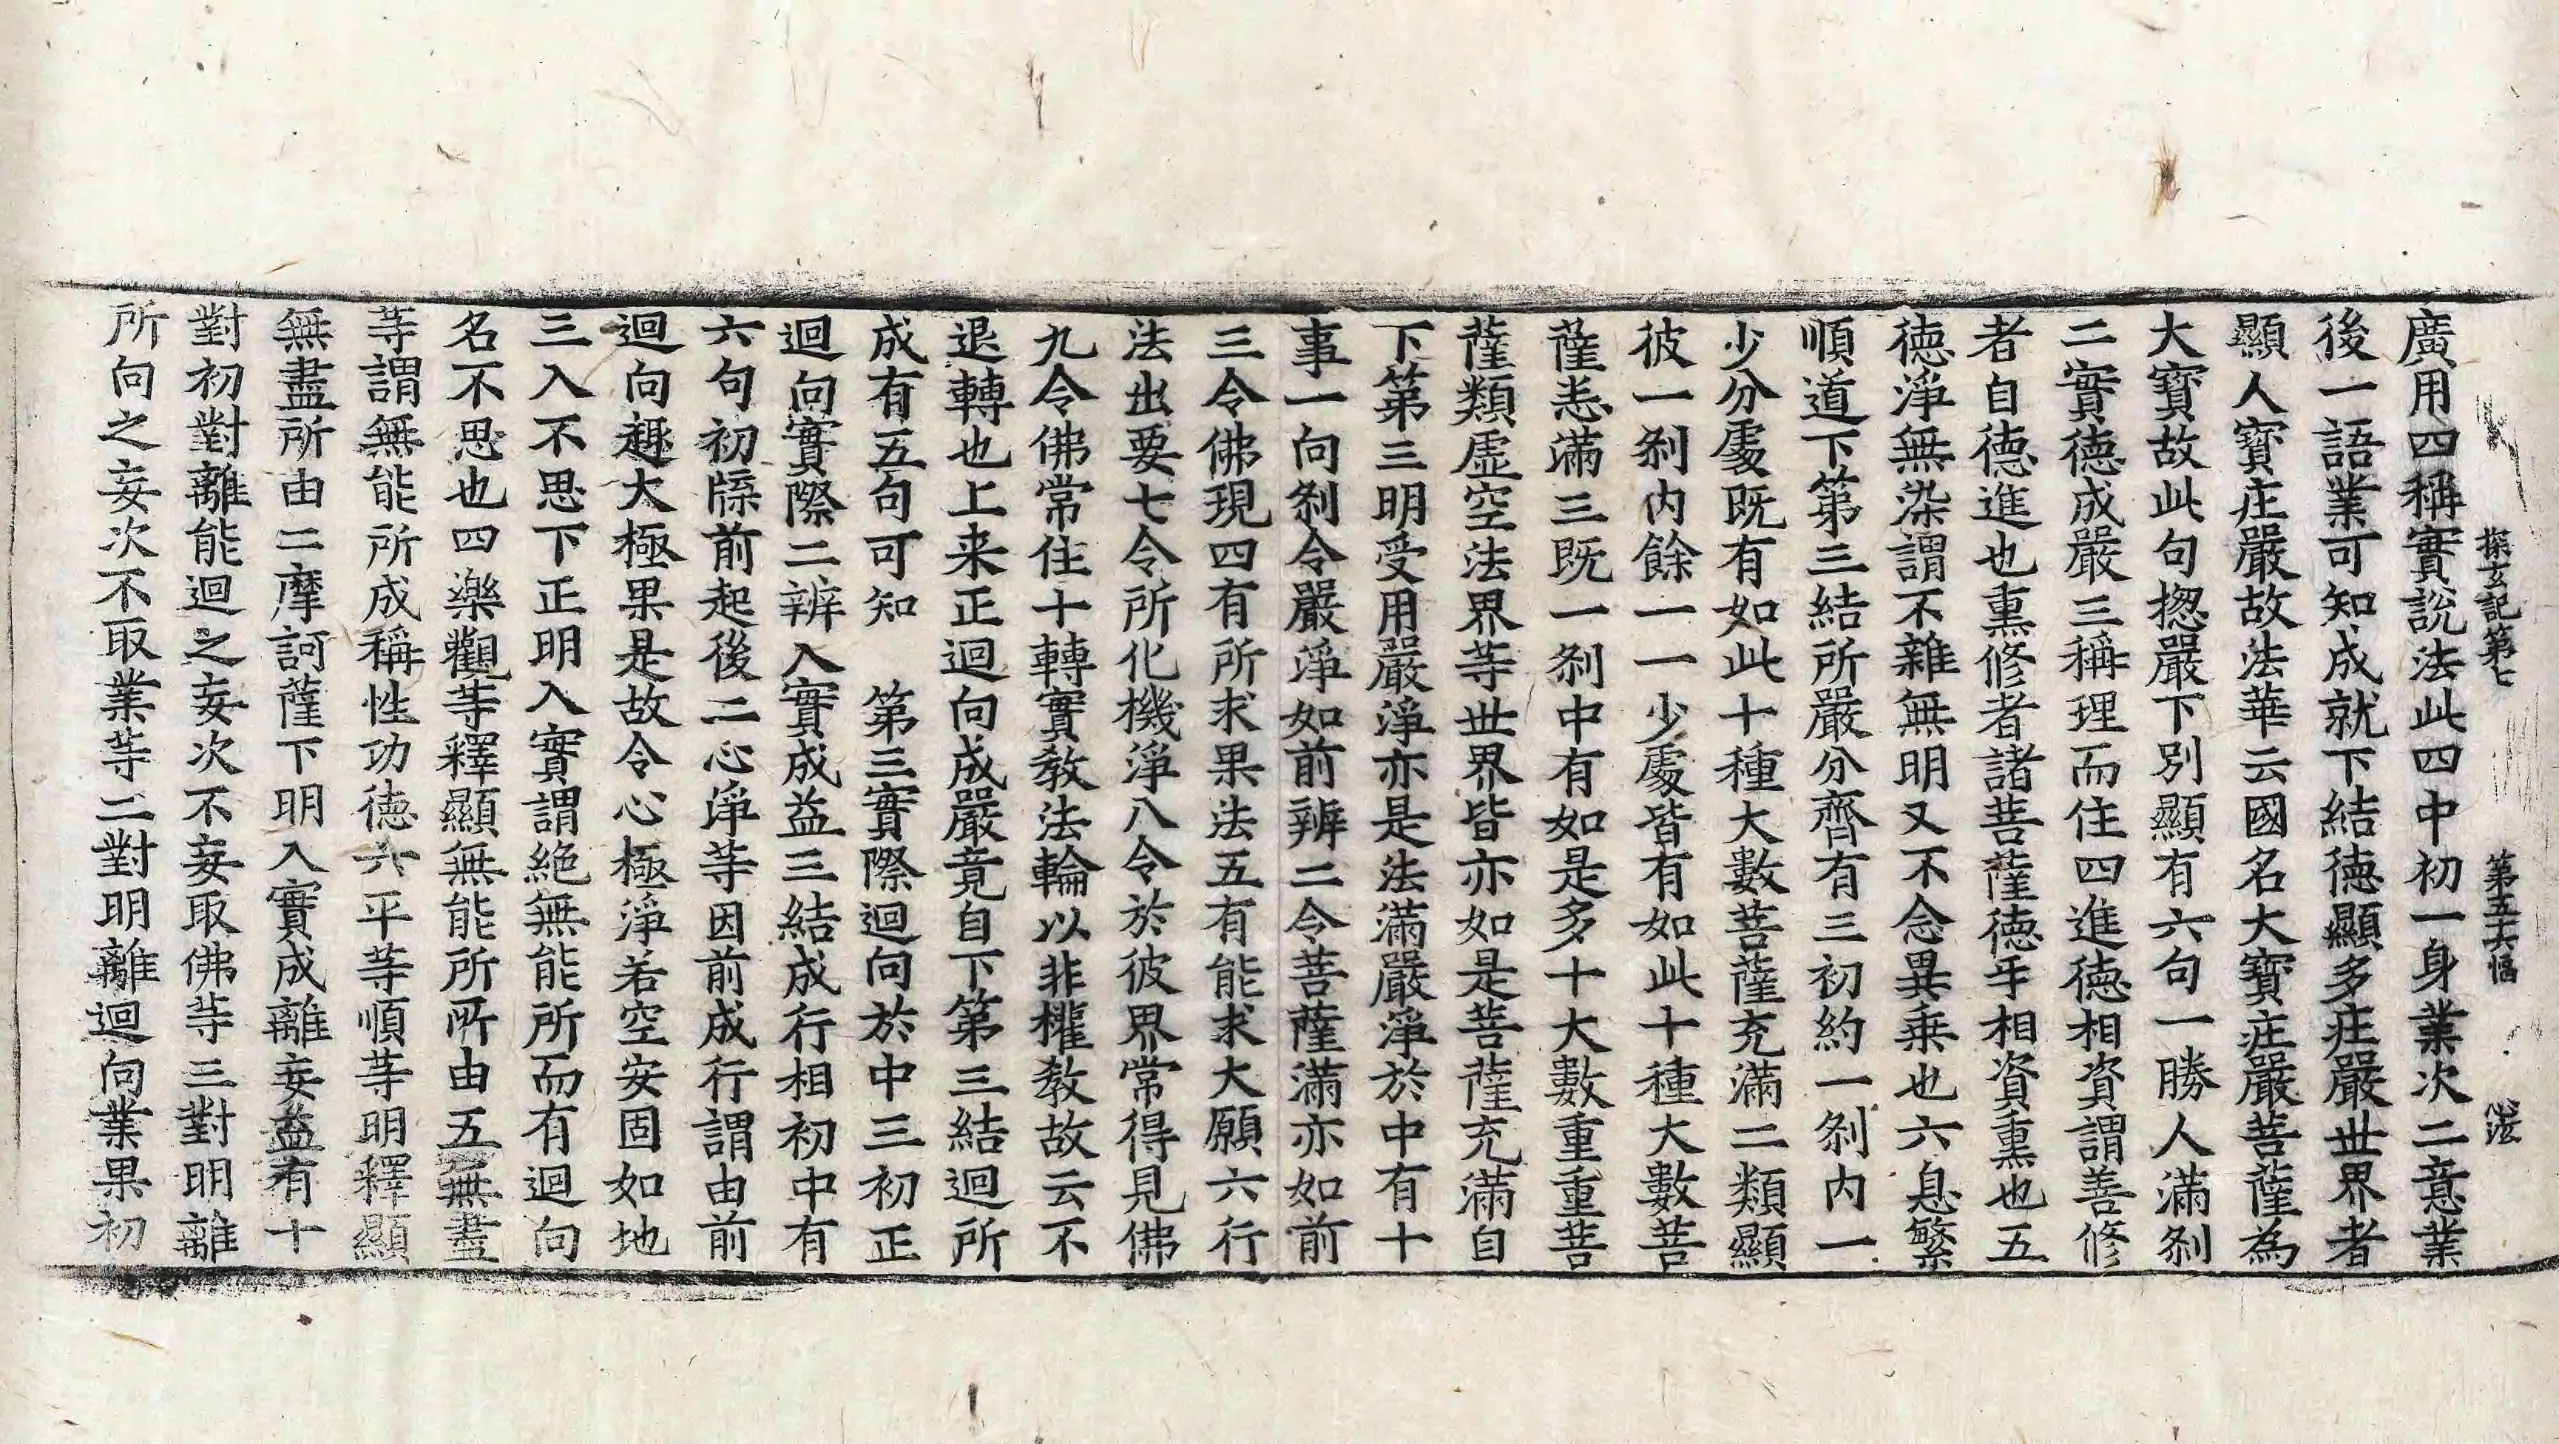 探玄記第七 第五十六幅 心法
廣用四稱實說法此四中初一身業次二意業
後一語業可知成就下結德顯多庄嚴世界者
顯人寳庄嚴故法華云國名大寳庄嚴菩薩為
大寳故此句揔嚴下別顯有六句一勝人滿刹
二實德成嚴三稱理而住四進德相資謂善修
者自德進也熏修者諸菩薩德手相資熏也五
德淨無染謂不雜無明又不念異乗也六息繁
順道下第三結所嚴分齊有三初約一刹内一
少分處既有如此十種大數菩薩充滿二類顯
彼一刹内餘一一少處皆有如此十種大數菩
薩恙滿三既一刹中有如是多十大數重重菩
薩類虛空法界等世界皆亦如是菩薩充滿自
下第三明受用嚴淨亦是法滿嚴淨於中有十
事一向刹令嚴淨如前辨二令菩薩滿亦如前
三令佛現四有所求果法五有能求大願六行
法出要七令所化機淨八令於彼界常得見佛
九令佛常住十轉實教法輪以非權教故云不
退轉也上来正迴向成嚴竟自下第三結迴所
成有五句可知　第三實際迴向於中三初正
迴向實際二辨入實成益三結成行相初中有
六句初牒前起後二心淨等因前成行謂由前
迴向趣大極果是故令心極淨若空安固如地
三入不思下正明入實謂絶無能所而有迴向
名不思也四樂觀等釋顯無能所所由五無盡
等謂無能所成稱性功德六平等順等明釋顯
無盡所由二摩訶薩下明入實成離妄益有十
對初對離能迴之妄次不妄取佛等三對明離
所向之妄次不取業等二對明離迴向業果初